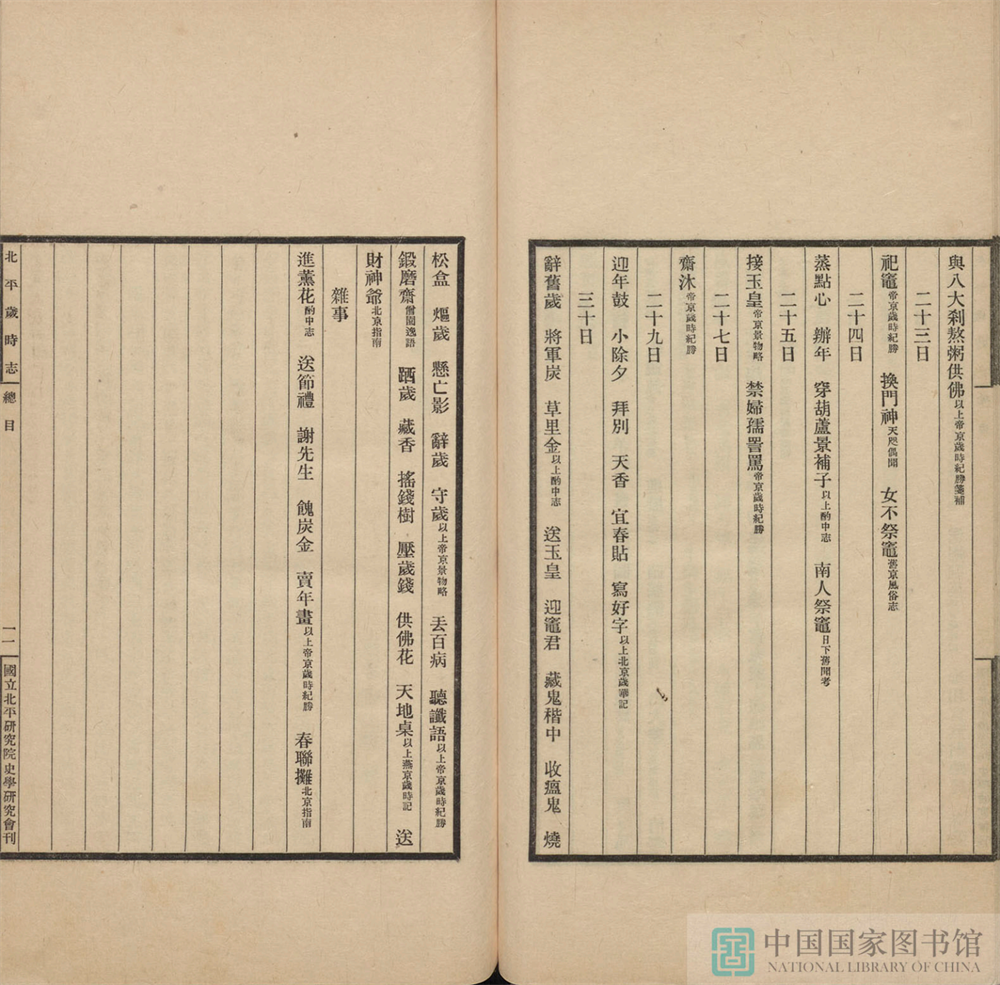 與八大刹熬粥供佛以上帝京歲時紀勝箋補
二十三日
祀竈帝京歲時紀勝 換門神天咫偶聞 女不祭竈舊京風俗志
二十四日
蒸點心 辦年 穿葫蘆景補子以上酌中志 南人祭竈日下舊聞考
二十五日
接玉皇帝京景物略 禁婦孺詈罵帝京歲時紀勝
二十七日
齋沐帝京歲時紀勝
二十九日
迎年鼓 小除夕 拜別 天香 宜春貼 寫好字以上北京歲華記
三十日
辭舊歲 將軍炭 草里金以上酌中志 送玉皇 迎竈君 藏鬼楷中 收瘟鬼 燒
松盒 熰歲 懸亡影 辭歲 守歲以上帝京景物略 丢百病 聽讖語以上帝京歲時紀勝
鍛磨齋僧園逸語 跴歲 藏香 搖錢樹 壓歲錢 供佛花 天地桌以上燕京歲時記 送
財神爺北京指南
雜事
進薰花酌中志 送節禮 謝先生 餽炭金 賣年畫以上帝京歲時紀勝 春聯攤北京指南
北平歲時志
總目
一一
國立北平研究院史學研究會刊
中国国家图书馆
NATIONAL LIBRARY OF CHINA